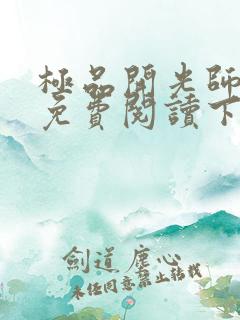 極品開光師
免費閱讀下
劍道塵心
未经同意禁止转载